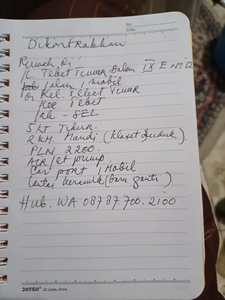 No.
Date
Dikontrakkan
Rumah di:
JL Tebet Timur Dalam IX E No 12
Jalan 1 mobil
Kel. Tebet Timur
Kec Tebet
Jak - SEL
5 KT Tidur.
2 KM. Mandi (Kloset duduk)
PLN 2200.
AIR / jet pump
Car port 1 Mobil
Lantai keramik (baru ganti)
Hub. WA 08787.700.2100
JOYKO